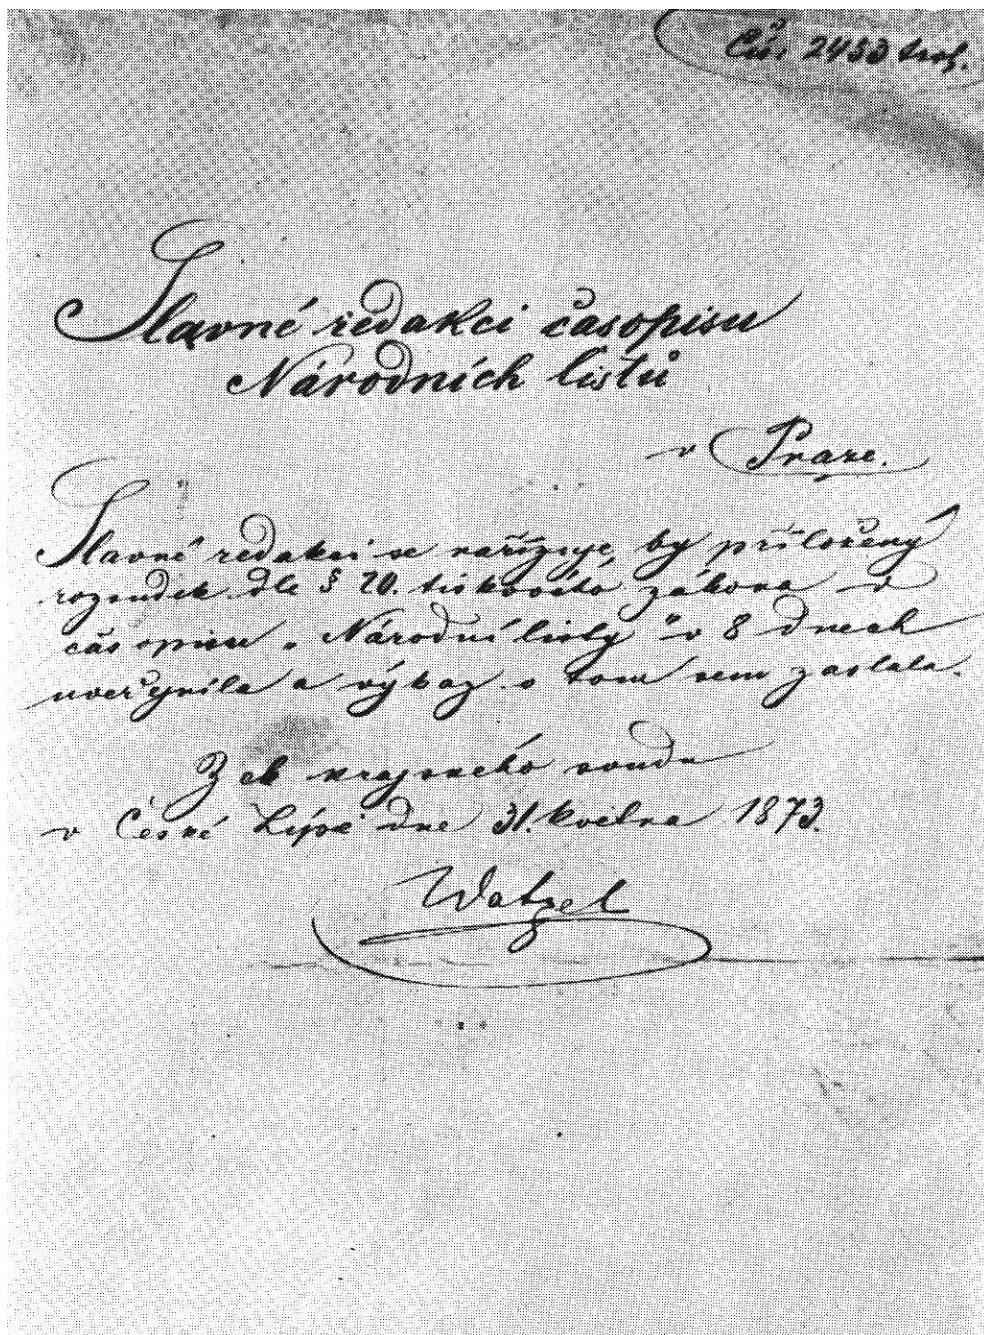 Čís. 2433 trest.
Slavné redakci časopisu
Národních listů
v Praze.
Slavné redakci se nařizuje, by přiložený
rozsudek dle § 20. tiskového zákona v
časopisu „Národní listy" v 8 dnech
uveřejnila a výkaz o tom sem zaslala.
Z ck krajského soudu
v České Lípě dne 31. května 1873.
Watzel